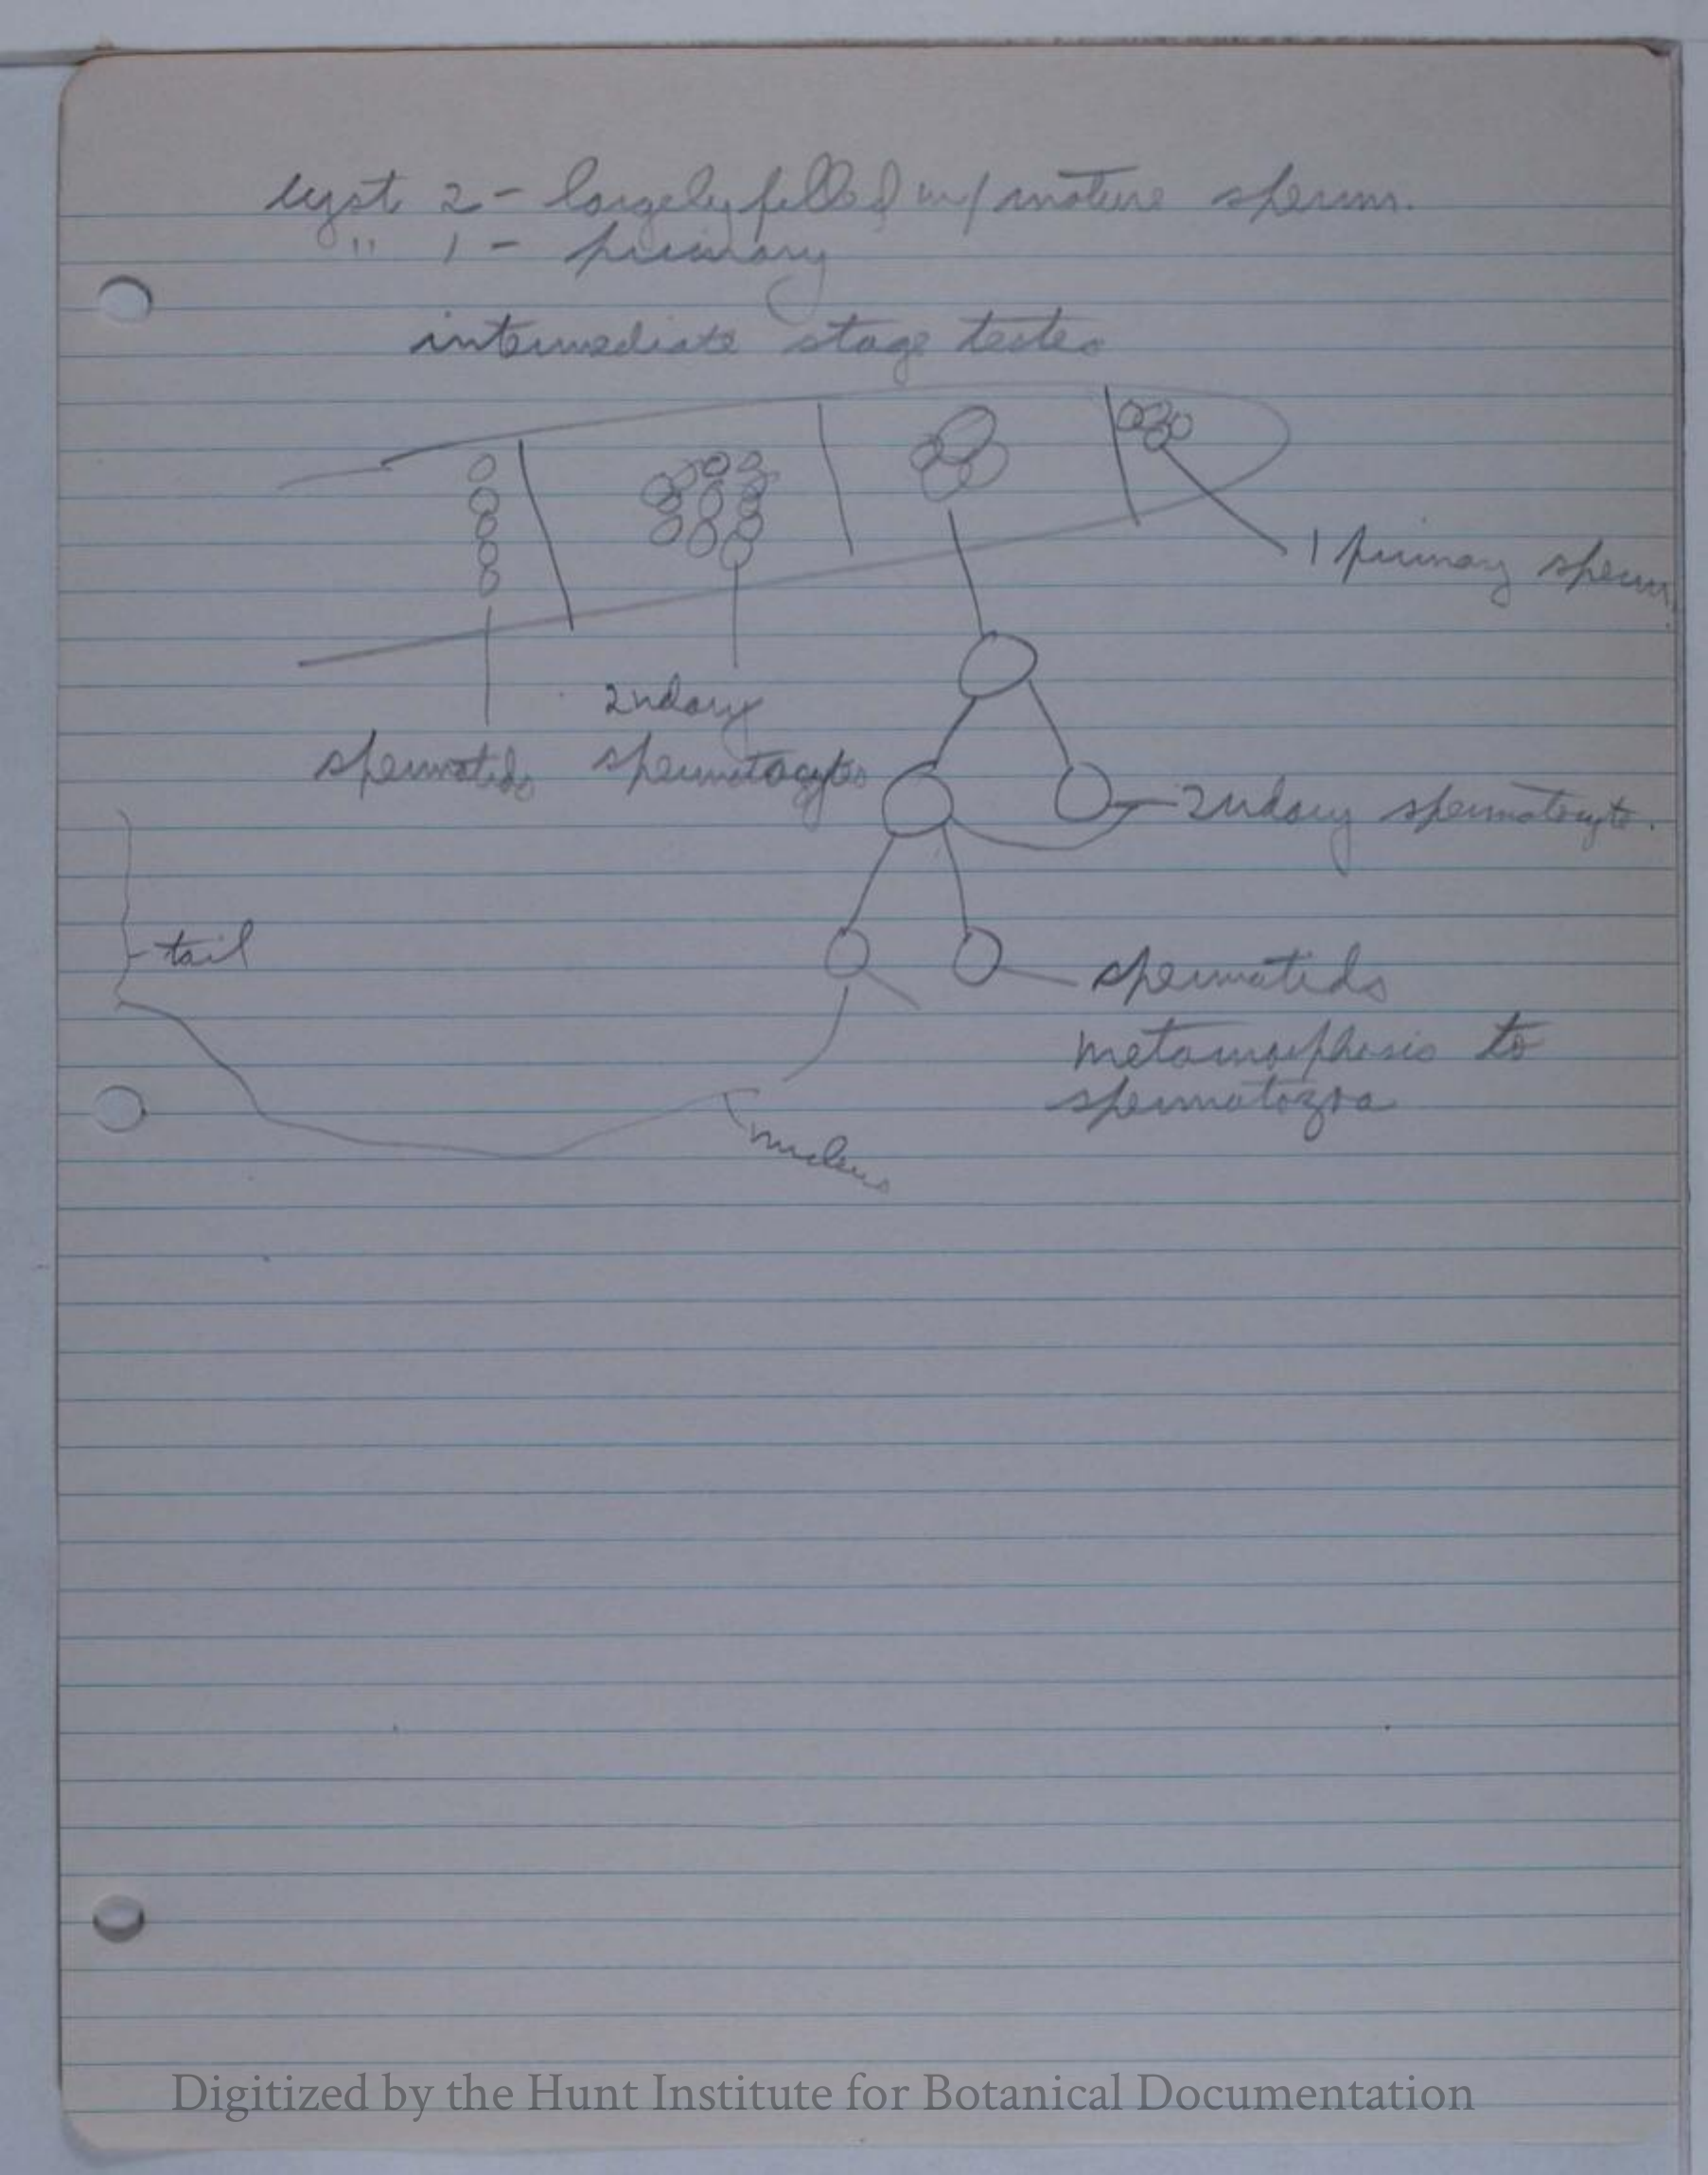 cyst 2 - largely filled w/ mature sperm.
" 1 - primary
intermediate stage testes
1 primary sperm
2ndary
spermatids spermatocytes
2ndary spermatocyte.
tail
spermatids
metamorphosis to
spermatozoa
nucleus
Digitized by the Hunt Institute for Botanical Documentation